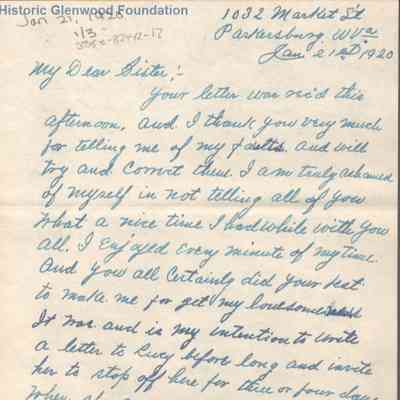 Historic Glenwood Foundation
Jan 21, 1920
1/3
1032 Market St
Parkersburg W Va
Jan 21st 1920
My Dear Sister;-
Your letter was rec'd this
afternoon. And I thank you very much
for telling me of my faults. and will
try and correct them. I am truly ashamed
of myself in not telling all of you
what a nice time I had while with you
all. I Enjoyed Every minute of my time.
And you all Certainly did your best
to make me for get my lonesomeness
It was and is my intention to write
a letter to Lucy before long and invite
her to stop off here for three or four days
when she